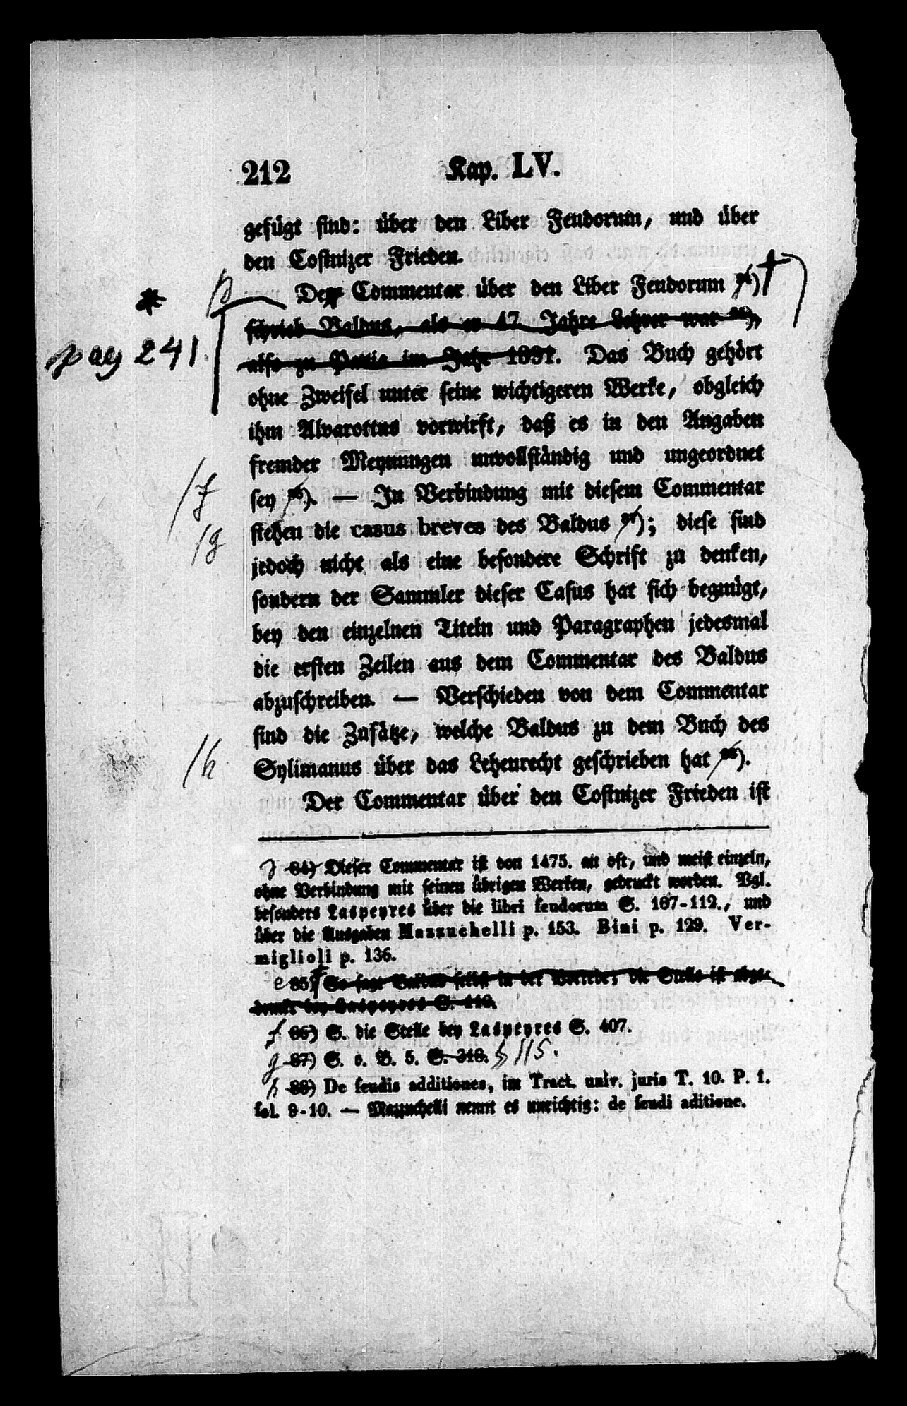 212 Kap. LV.
gefügt sind: über den Liber Feudorum, und über
den Costnizer Frieden.
Commentar über den Liber Feudorum 84)
* schrieb Baldus, als er 47 Jahre Lehrer war 85),
pag 241 also zu Pavia im Jahr 1391. Das Buch gehört
ohne Zweifel unter seine wichtigeren Werke, obgleich
ihm Alvarottus vorwirft, daß es in den Angaben
fremder Meynungen unvollständig und ungeordnet
/f sey 86). — In Verbindung mit diesem Commentar
/g stehen die casus breves des Baldus 87); diese sind
jedoch nicht als eine besondere Schrift zu denken,
sondern der Sammler dieser Casus hat sich begnügt,
bey den einzelnen Titeln und Paragraphen jedesmal
die ersten Zeilen aus dem Commentar des Baldus
abzuschreiben. — Verschieden von dem Commentar
sind die Zusätze, welche Baldus zu dem Buch des
/h Sylimanus über das Lehenrecht geschrieben hat 88).
Der Commentar über den Costnizer Frieden ist
84) Dieser Commentar ist von 1475. an oft, und meist einzeln,
ohne Verbindung mit seinen übrigen Werken, gedruckt worden. Vgl.
besonders Laspeyres über die libri feudorum S. 107-112., und
über die Ausgaben Mazzuchelli p. 153. Bini p. 129. Ver-
miglioli p. 136.
e 85) So sagt Baldus selbst in der Vorrede; die Stelle ist abge-
druckt bey Laspeyres S. 110.
f 86) S. die Stelle bey Laspeyres S. 407.
g 87) S. o. B. 5. S. 318. § 115.
h 88) De feudis additiones, im Tract. univ. juris T. 10. P. 1.
fol. 9-10. — Mazzuchelli nennt es unrichtig: de feudi aditione.